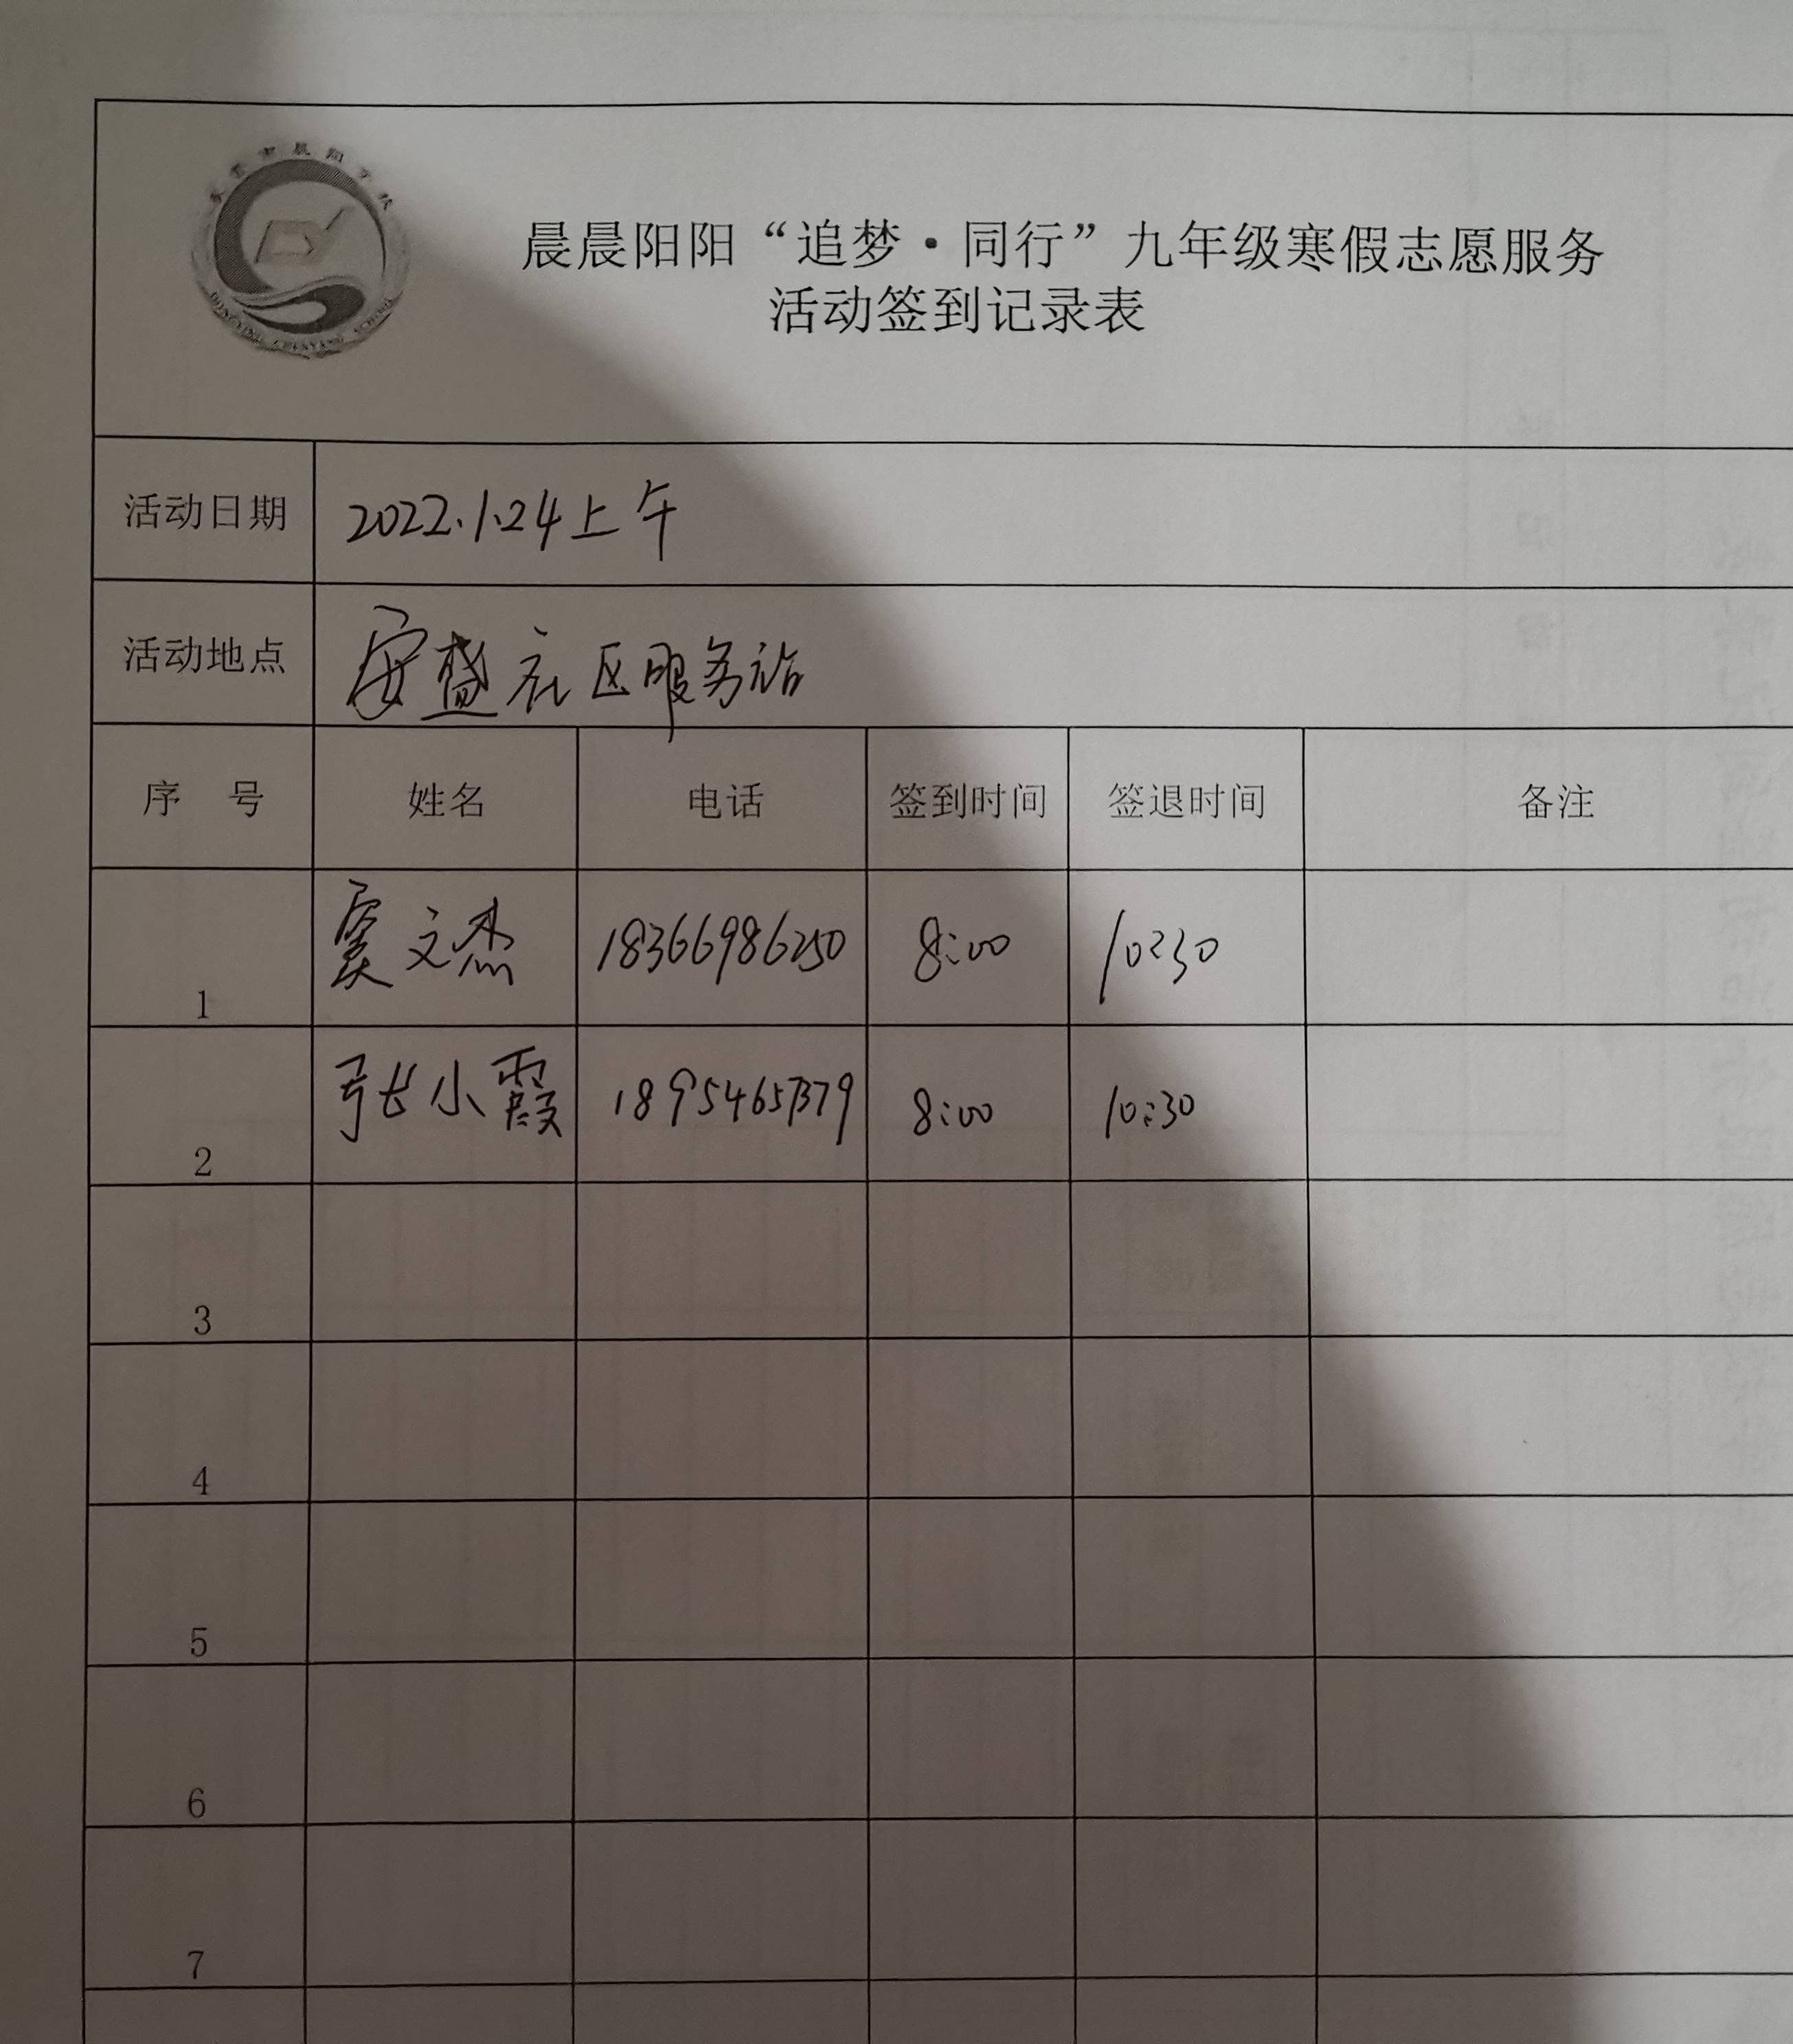 东营市晨阳学校
DONGYING CHENYANG SCHOOL
晨晨阳阳“追梦·同行”九年级寒假志愿服务
活动签到记录表
活动日期 2022.1.24上午
活动地点 安盛社区服务站
序 号 姓名 电话 签到时间 签退时间 备注
1 窦文杰 18366986250 8:00 10:30
2 张小霞 18954657379 8:00 10:30
3
4
5
6
7